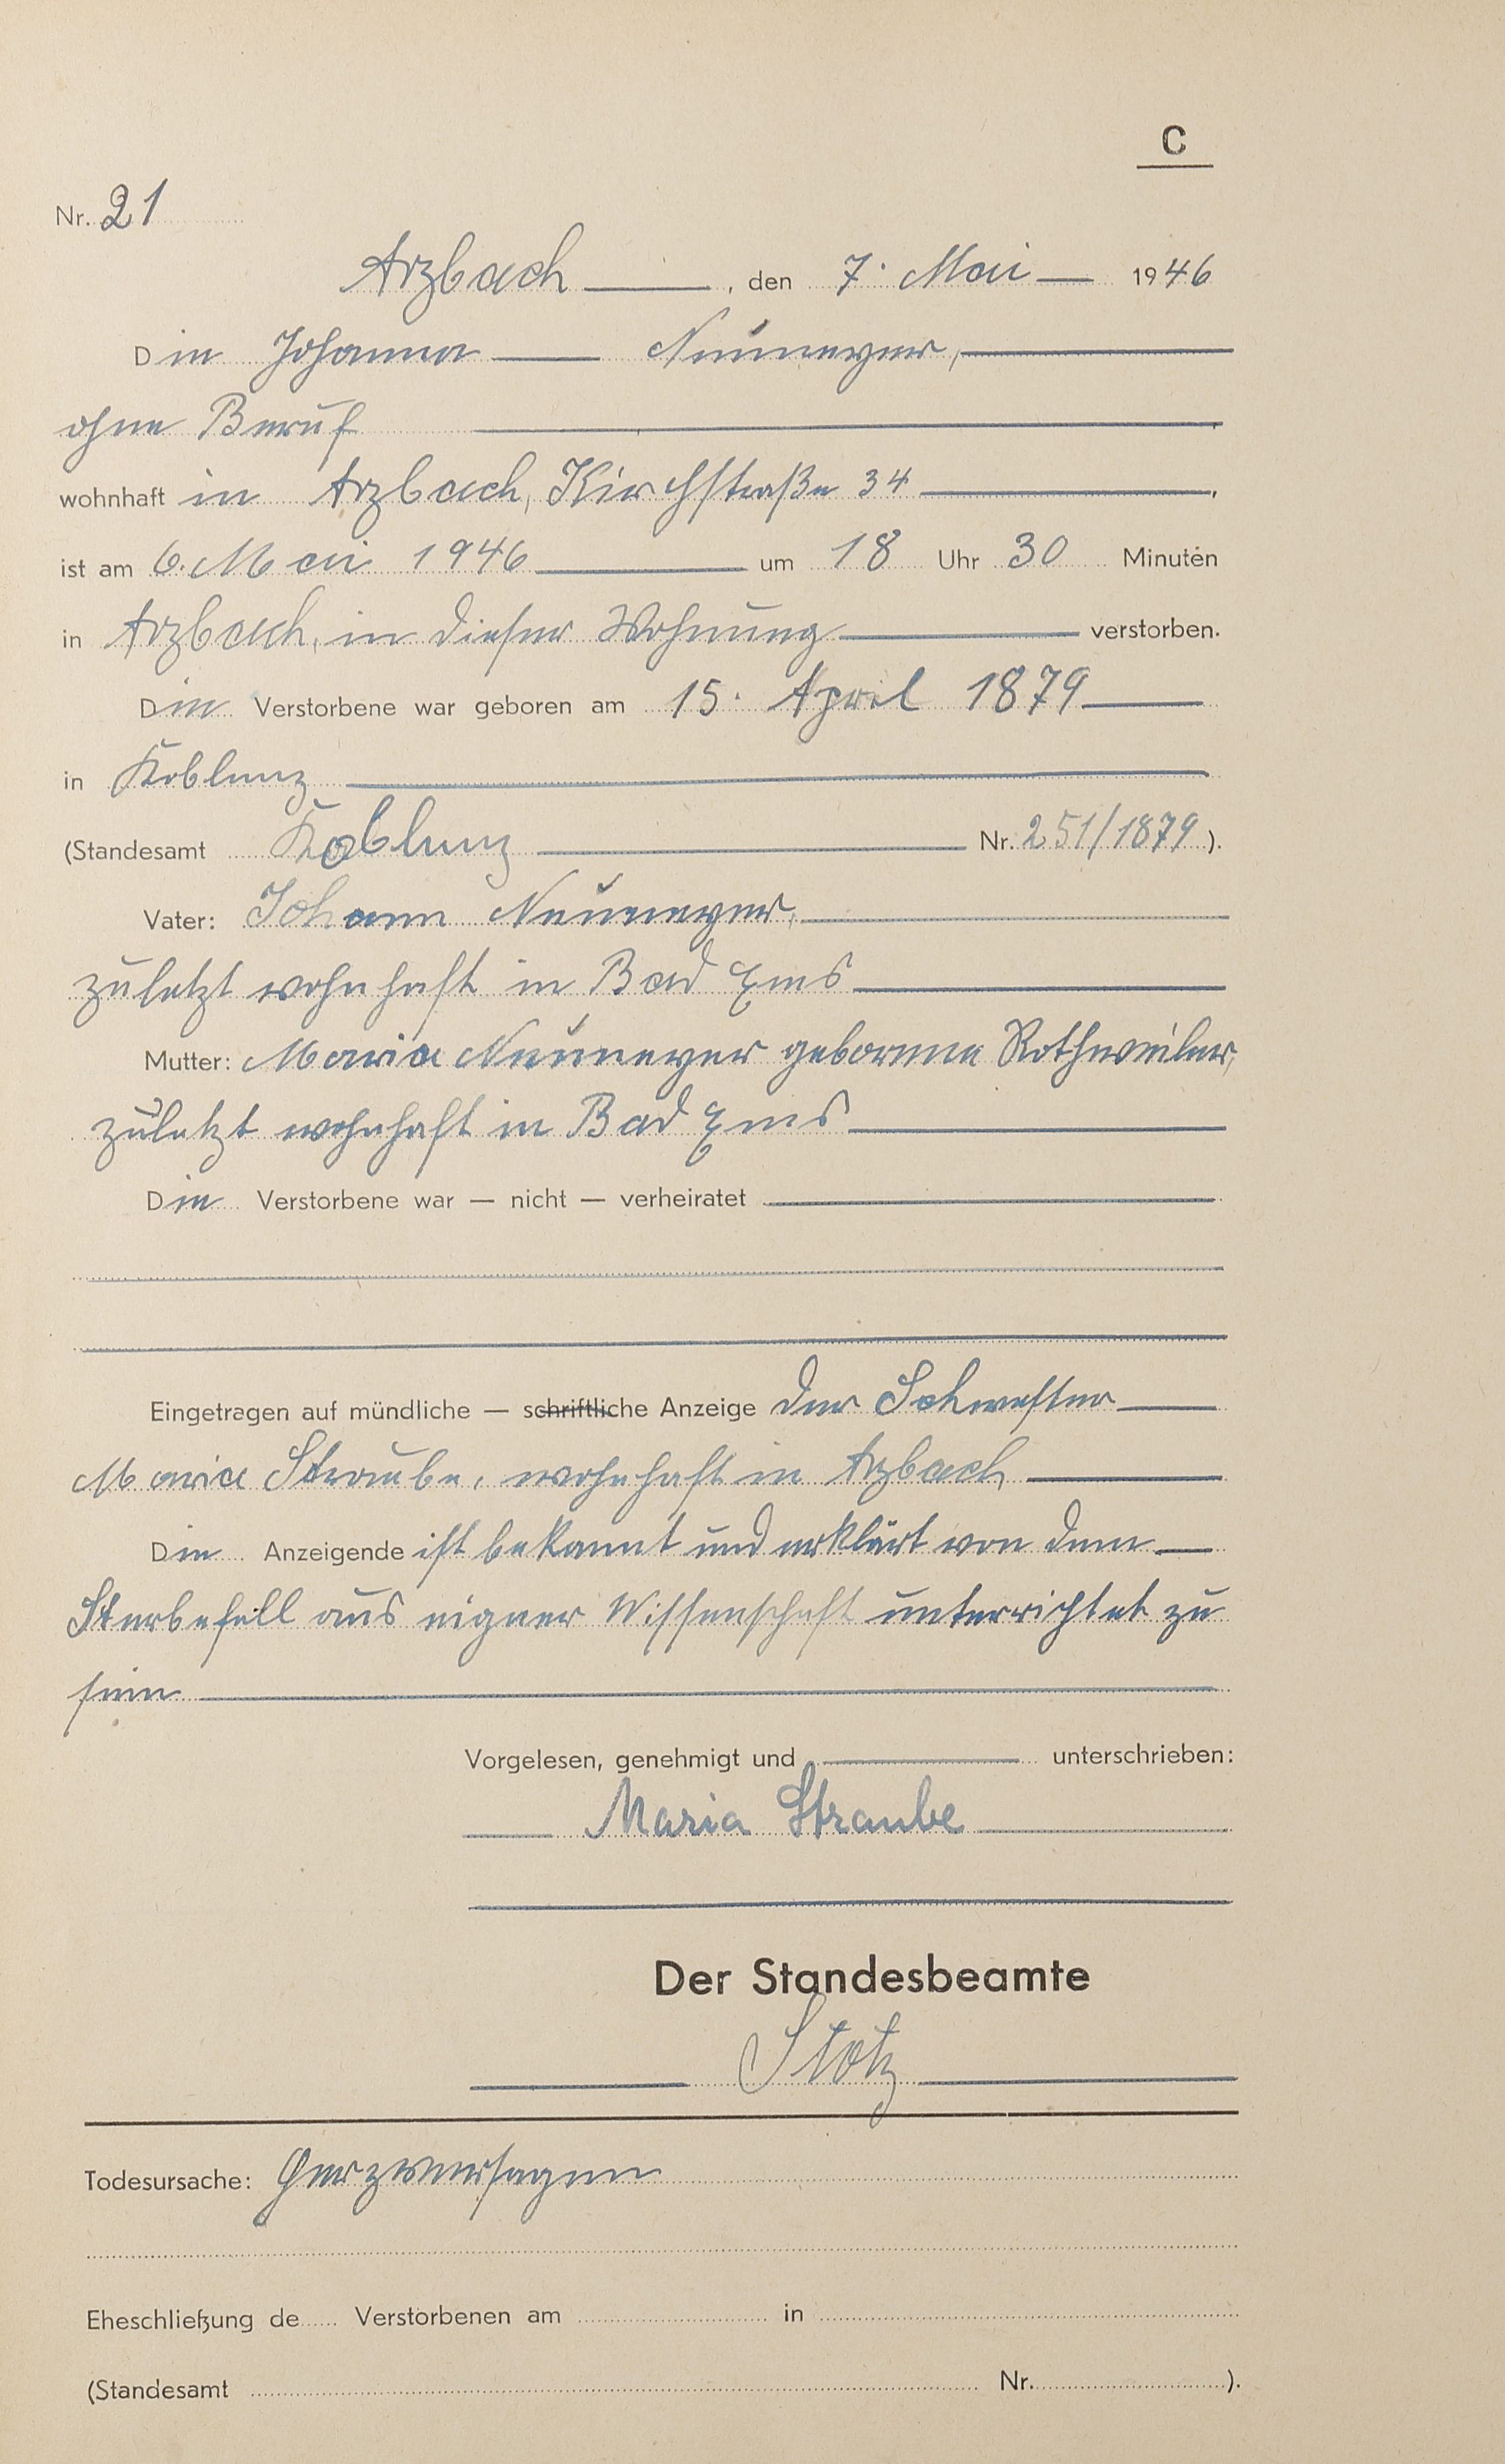 C
Nr. 21
Arzbach, den 7. Mai 1946
Die Johanna Neumeyer,
ohne Beruf
wohnhaft in Arzbach, Kirchstraße 34,
ist am 6. Mai 1946 um 18 Uhr 30 Minuten
in Arzbach, in dieser Wohnung verstorben.
Die Verstorbene war geboren am 15. April 1879
in Koblenz
(Standesamt Koblenz Nr. 251/1879).
Vater: Johann Neumeyer,
zuletzt wohnhaft in Bad Ems
Mutter: Maria Neumeyer geborene Rothweiler,
zuletzt wohnhaft in Bad Ems
Die Verstorbene war — nicht — verheiratet
Eingetragen auf mündliche — schriftliche Anzeige der Schwester
Maria Straube, wohnhaft in Arzbach
Die Anzeigende ist bekannt und erklärt von dem
Sterbefall aus eigner Wissenschaft unterrichtet zu
sein
Vorgelesen, genehmigt und unterschrieben:
Maria Straube
Der Standesbeamte
Stotz
Todesursache: Herzversagen
Eheschließung de Verstorbenen am in
(Standesamt Nr. ).